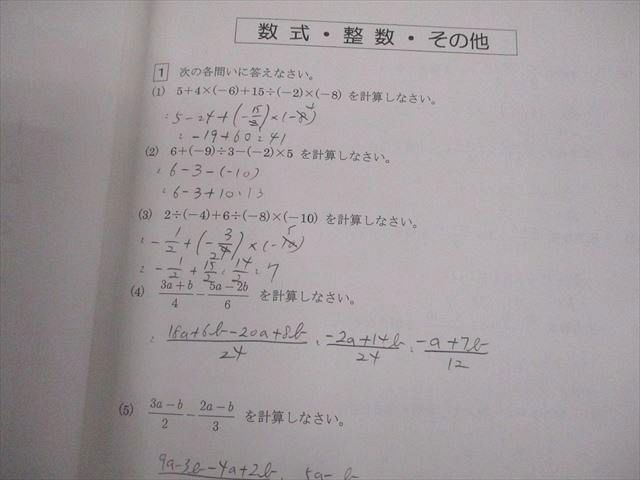 数 式 ・ 整 数 ・ その他
1 次の各問いに答えなさい。
(1) 5+4×(−6)+15÷(−2)×(−8) を計算しなさい。
= 5−24+(−15/2)×(−8)
= −19+60=41
(2) 6+(−9)÷3−(−2)×5 を計算しなさい。
= 6−3−(−10)
= 6−3+10=13
(3) 2÷(−4)+6÷(−8)×(−10) を計算しなさい。
= −1/2+(−3/4)×(−10)
= −1/2+15/2=14/2=7
(4) (3a+b)/4−(5a−2b)/6 を計算しなさい。
= (18a+6b−20a+8b)/24=(−2a+14b)/24=(−a+7b)/12
(5) (3a−b)/2−(2a−b)/3 を計算しなさい。
9a−3b−4a+2b 5a−b